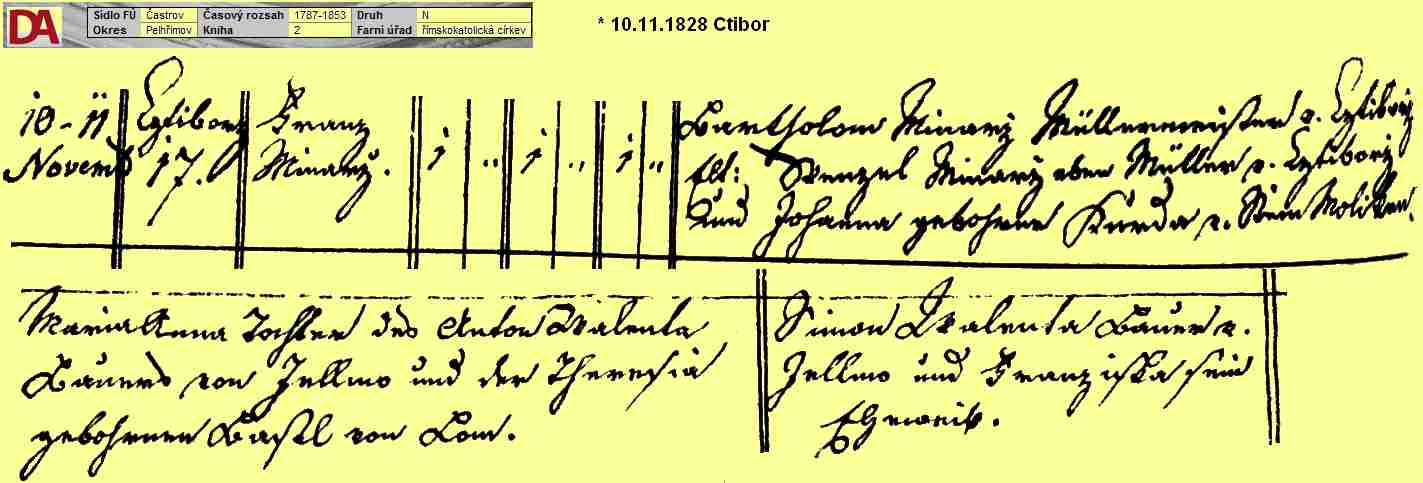 DA
Sídlo FÚ Častrov Časový rozsah 1787-1853 Druh N
Okres Pelhřimov Kniha 2 Farní úřad římskokatolická církev
* 10.11.1828 Ctibor
10-11 Cztiborz Franz 1 „ 1 „ 1 „ Bartholom Minarz Müllermeister v. Cztiborz
Novemb 17. Minarz. Elt: Wenzel Minarz eben Müller v. Cztiborz
und Johanna gebohrne Kurda v.
Maria Anna Tochter des Anton Walenta
Bauers von Jellmo und der Theresia
gebohrnen Bastl von Lom.
Simon Walenta Bauer v.
Jellmo und Franziska sein
Eheweib.